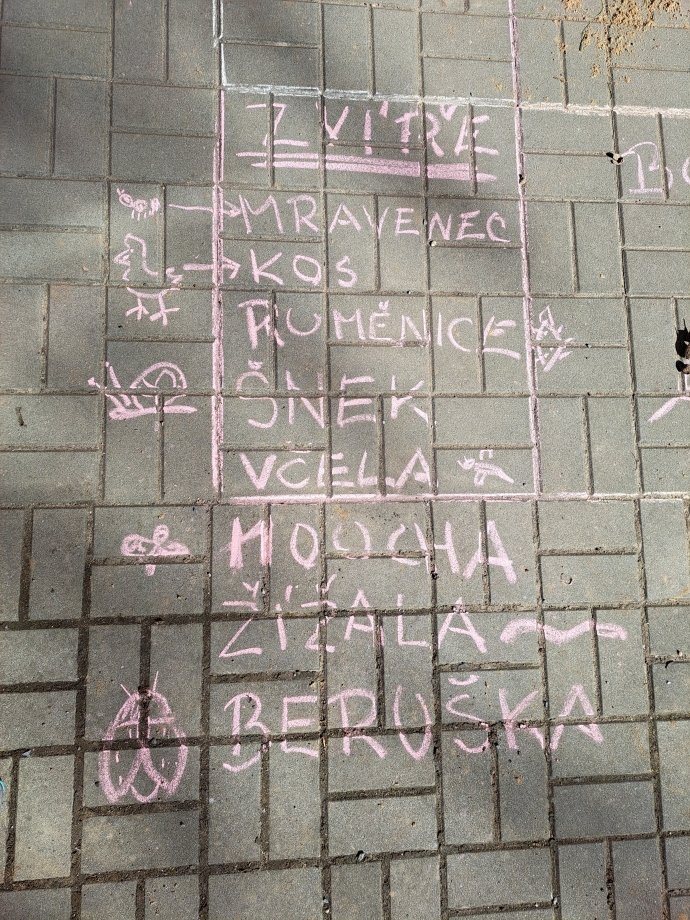 ZVÍŘE
MRAVENEC
KOS
RUMĚNICE
ŠNEK
VCELA
MOUCHA
ŽÍŽALA
BERUŠKA